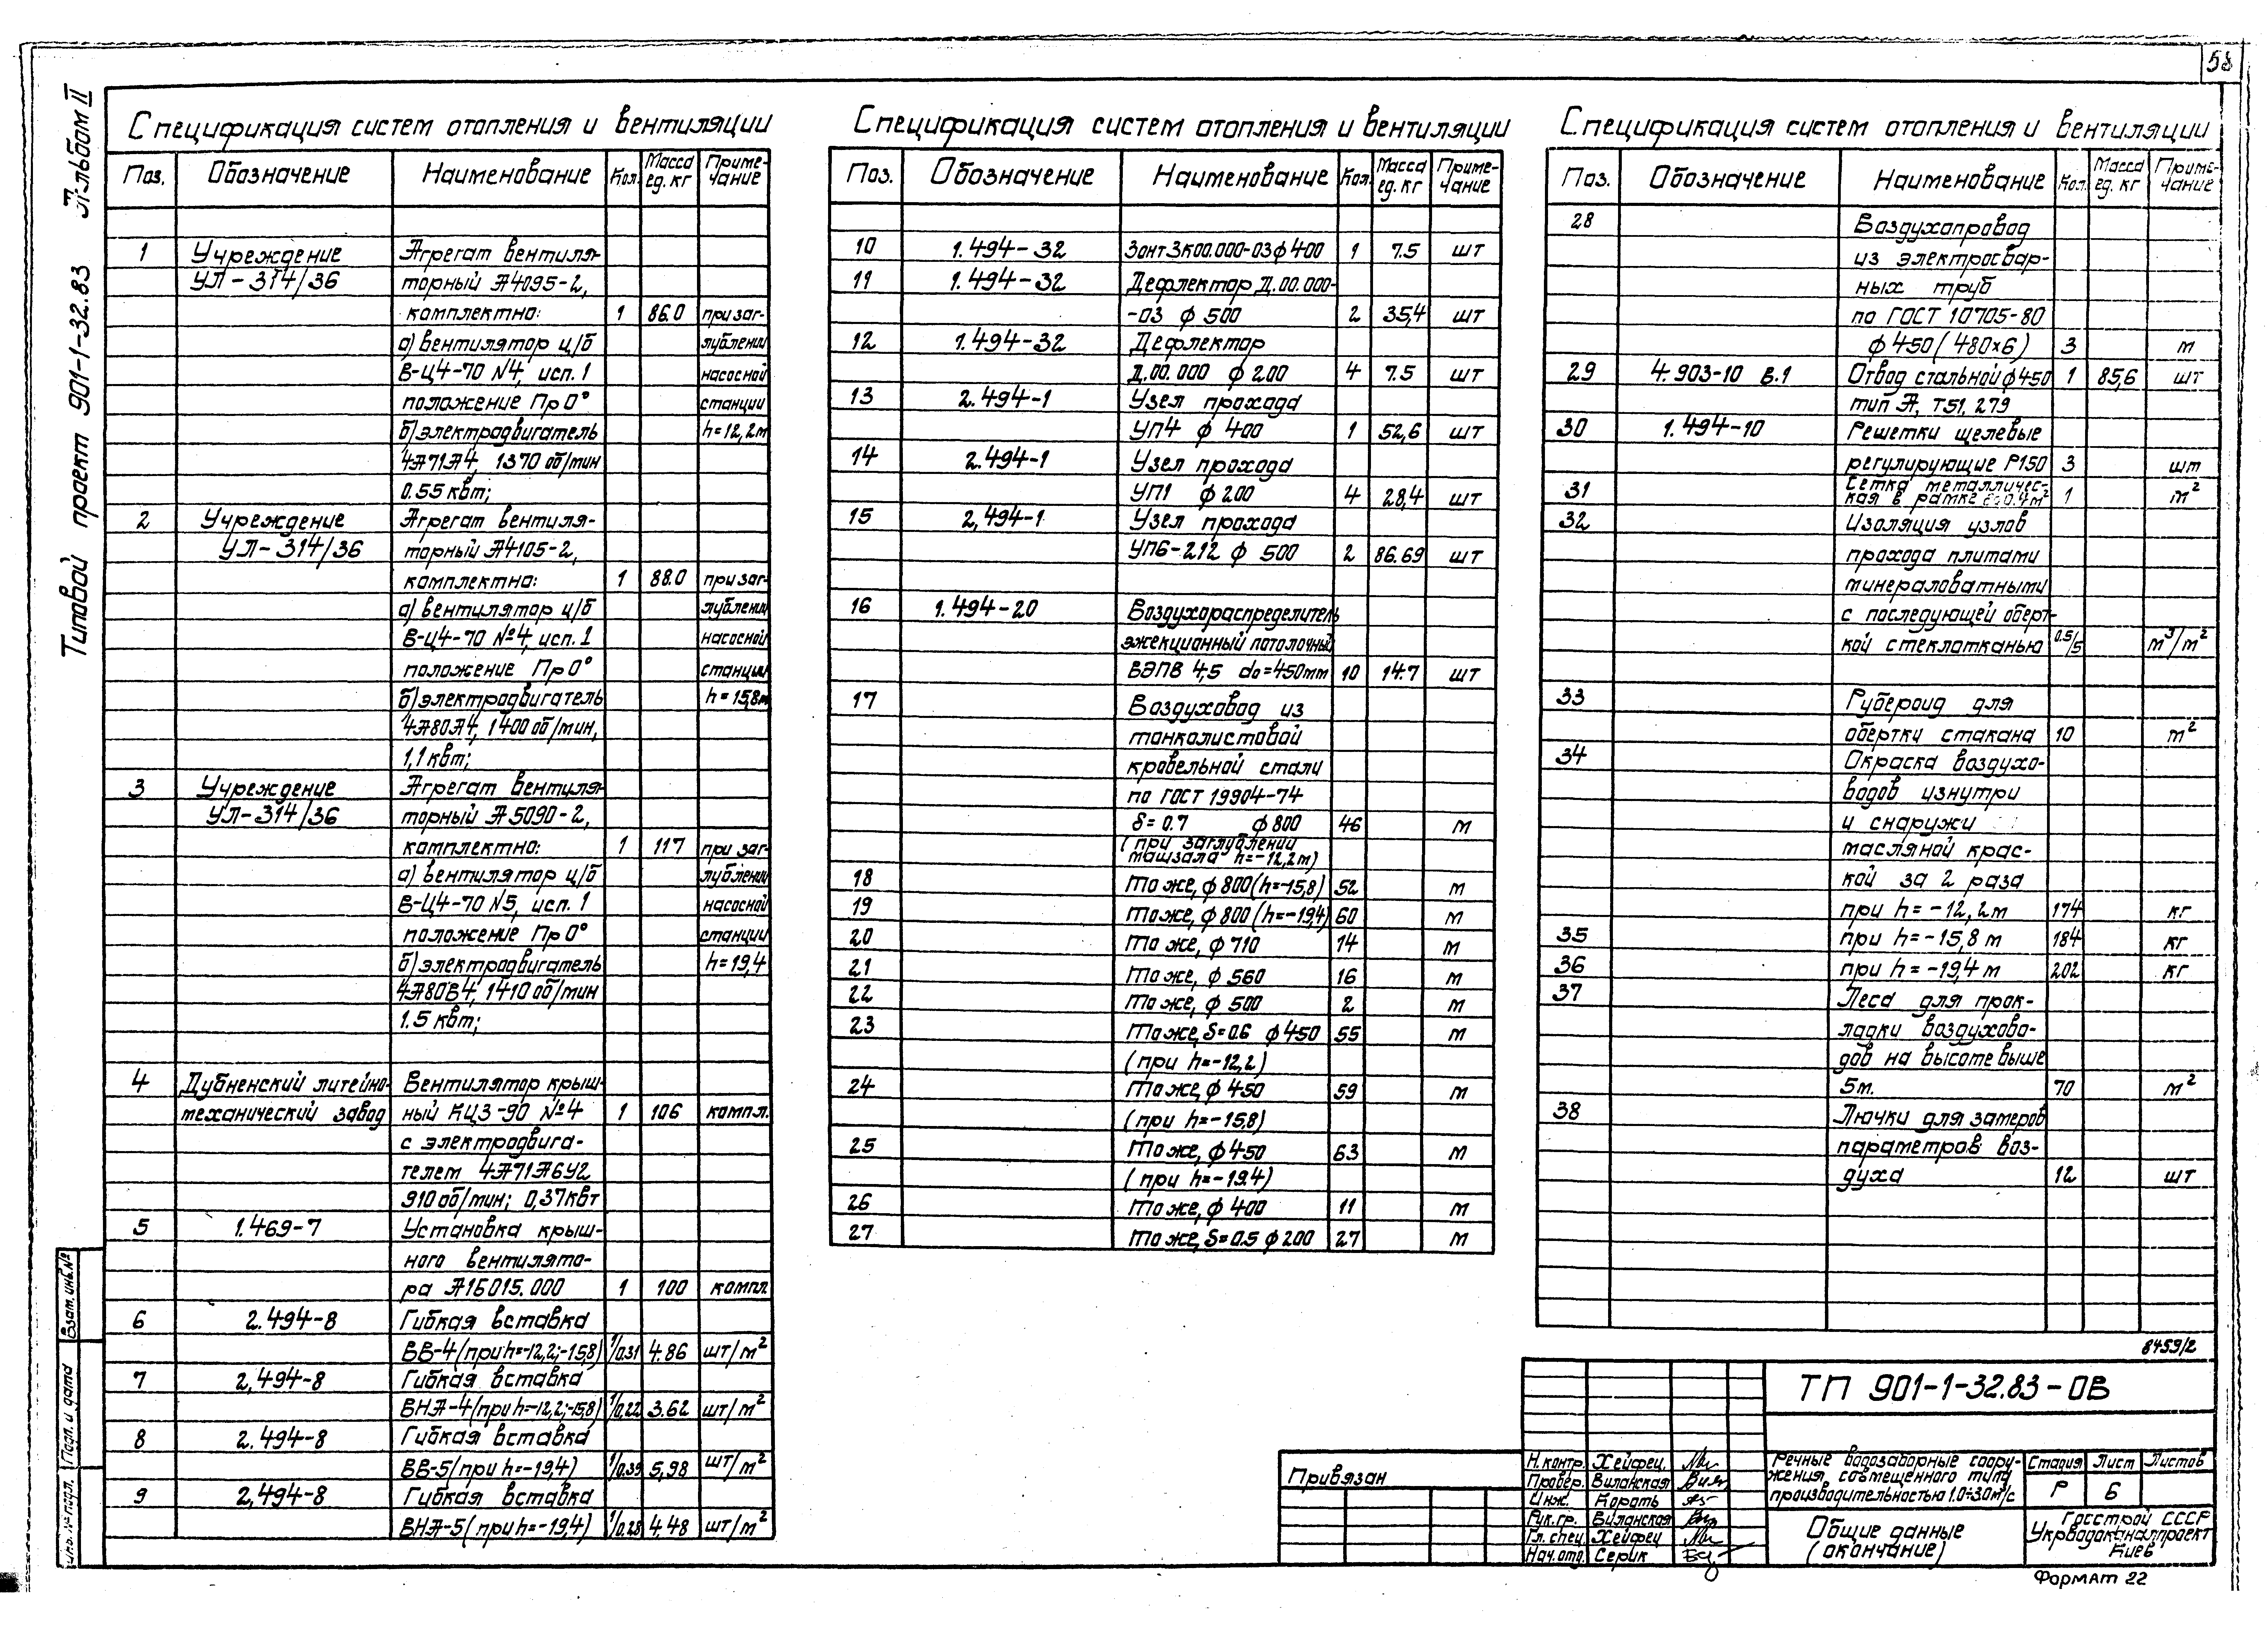 58
Альбом II
Типовой проект 901-1-32.83
Спецификация систем отопления и вентиляции
Поз. Обозначение Наименование Кол. Масса ед. кг Приме-чание
1 Учреждение Агрегат вентиля-
УЛ-314/36 торный А4095-2,
комплектно: 1 86.0 при заг-
а) вентилятор ц/б лублении
В-Ц4-70 №4, исп. 1 насосной
положение Пр 0° станции
б) электродвигатель h=12,2м
4А71А4, 1370 об/мин
0.55 квт;
2 Учреждение Агрегат вентиля-
УЛ-314/36 торный А4105-2,
комплектно: 1 88.0 при заг-
а) вентилятор ц/б лублении
В-Ц4-70 №4, исп. 1 насосной
положение Пр 0° станции
б) электродвигатель h=15,8м
4А80А4, 1400 об/мин,
1,1 квт;
3 Учреждение Агрегат вентиля-
УЛ-314/36 торный А5090-2,
комплектно: 1 117 при заг-
а) вентилятор ц/б лублении
В-Ц4-70 №5, исп. 1 насосной
положение Пр 0° станции
б) электродвигатель h=19,4
4А80В4, 1410 об/мин
1.5 квт;
4 Дубненский литейно- Вентилятор крыш-
механический завод ный КЦ3-90 №4 1 106 компл.
с электродвига-
телем 4А71А6У2
910 об/мин; 0,37 квт
5 1.469-7 Установка крыш-
ного вентилято-
ра А16015.000 1 100 компл.
6 2.494-8 Гибкая вставка
ВВ-4 (при h=-12,2;-15,8) 1/0.31 4.86 шт/м²
7 2.494-8 Гибкая вставка
ВНА-4 (при h=-12,2;-15,8) 1/0.22 3.62 шт/м²
8 2.494-8 Гибкая вставка
ВВ-5 (при h=-19,4) 1/0.39 5,98 шт/м²
9 2,494-8 Гибкая вставка
ВНА-5 (при h=-19,4) 1/0.28 4.48 шт/м²
Спецификация систем отопления и вентиляции
Поз. Обозначение Наименование Кол. Масса ед. кг Приме-чание
10 1.494-32 Зонт ЗК00.000-03 ф 400 1 7.5 шт
11 1.494-32 Дефлектор Д.00.000-
-03 ф 500 2 35,4 шт
12 1.494-32 Дефлектор
Д.00.000 ф 200 4 7.5 шт
13 2.494-1 Узел прохода
УП4 ф 400 1 52,6 шт
14 2.494-1 Узел прохода
УП1 ф 200 4 28,4 шт
15 2,494-1 Узел прохода
УП6-212 ф 500 2 86.69 шт
16 1.494-20 Воздухораспределитель
эжекционный потолочный
ВЭПВ 4,5 d₀=450мм 10 14.7 шт
17 Воздуховод из
тонколистовой
кровельной стали
по ГОСТ 19904-74
δ=0.7 ф 800 46 м
(при заглублении
машзала h=-12,2м)
18 То же, ф 800 (h=-15,8) 52 м
19 То же, ф 800 (h=-19,4) 60 м
20 То же, ф 710 14 м
21 То же, ф 560 16 м
22 То же, ф 500 2 м
23 То же, δ=0.6 ф 450 55 м
(при h=-12,2)
24 То же, ф 450 59 м
(при h=-15,8)
25 То же, ф 450 63 м
(при h=-19.4)
26 То же, ф 400 11 м
27 То же, δ=0.5 ф 200 27 м
Спецификация систем отопления и вентиляции
Поз. Обозначение Наименование Кол. Масса ед. кг Приме-чание
28 Воздухопровод
из электросвар-
ных труб
по ГОСТ 10705-80
ф 450 (480×6) 3 м
29 4.903-10 в.1 Отвод стальной ф 450 1 85,6 шт
тип А, Т51, 279
30 1.494-10 Решетки щелевые
регулирующие Р150 3 шт
31 Сетка металличес-
кая в рамке 0.4м² 1 м²
32 Изоляция узлов
прохода плитами
минераловатными
с последующей оберт-
кой стеклотканью 0.5/5 м³/м²
33 Рубероид для
обертки стакана 10 м²
34 Окраска воздухо-
водов изнутри
и снаружи
масляной крас-
кой за 2 раза
при h=-12,2м 174 кг
35 при h=-15,8 м 184 кг
36 при h=-19,4 м 202 кг
37 Леса для прок-
ладки воздухово-
дов на высоте выше
5м. 70 м²
38 Лючки для замеров
параметров воз-
духа 12 шт
8459/2
ТП 901-1-32.83-ОВ
Привязан
Н.контр. Хейфец
Провер. Виланская
Инж. Корать
Рук.гр. Виланская
Гл.спец. Хейфец
Нач.отд. Серик
Речные водозаборные соору-
жения совмещенного типа
производительностью 1.0÷3.0м/с
Стадия Лист Листов
Р 6
Общие данные
(окончание)
Госстрой СССР
Укрводоканалпроект
Киев
Формат 22
Взам. инв.№
Подп. и дата
Инв. № подл.